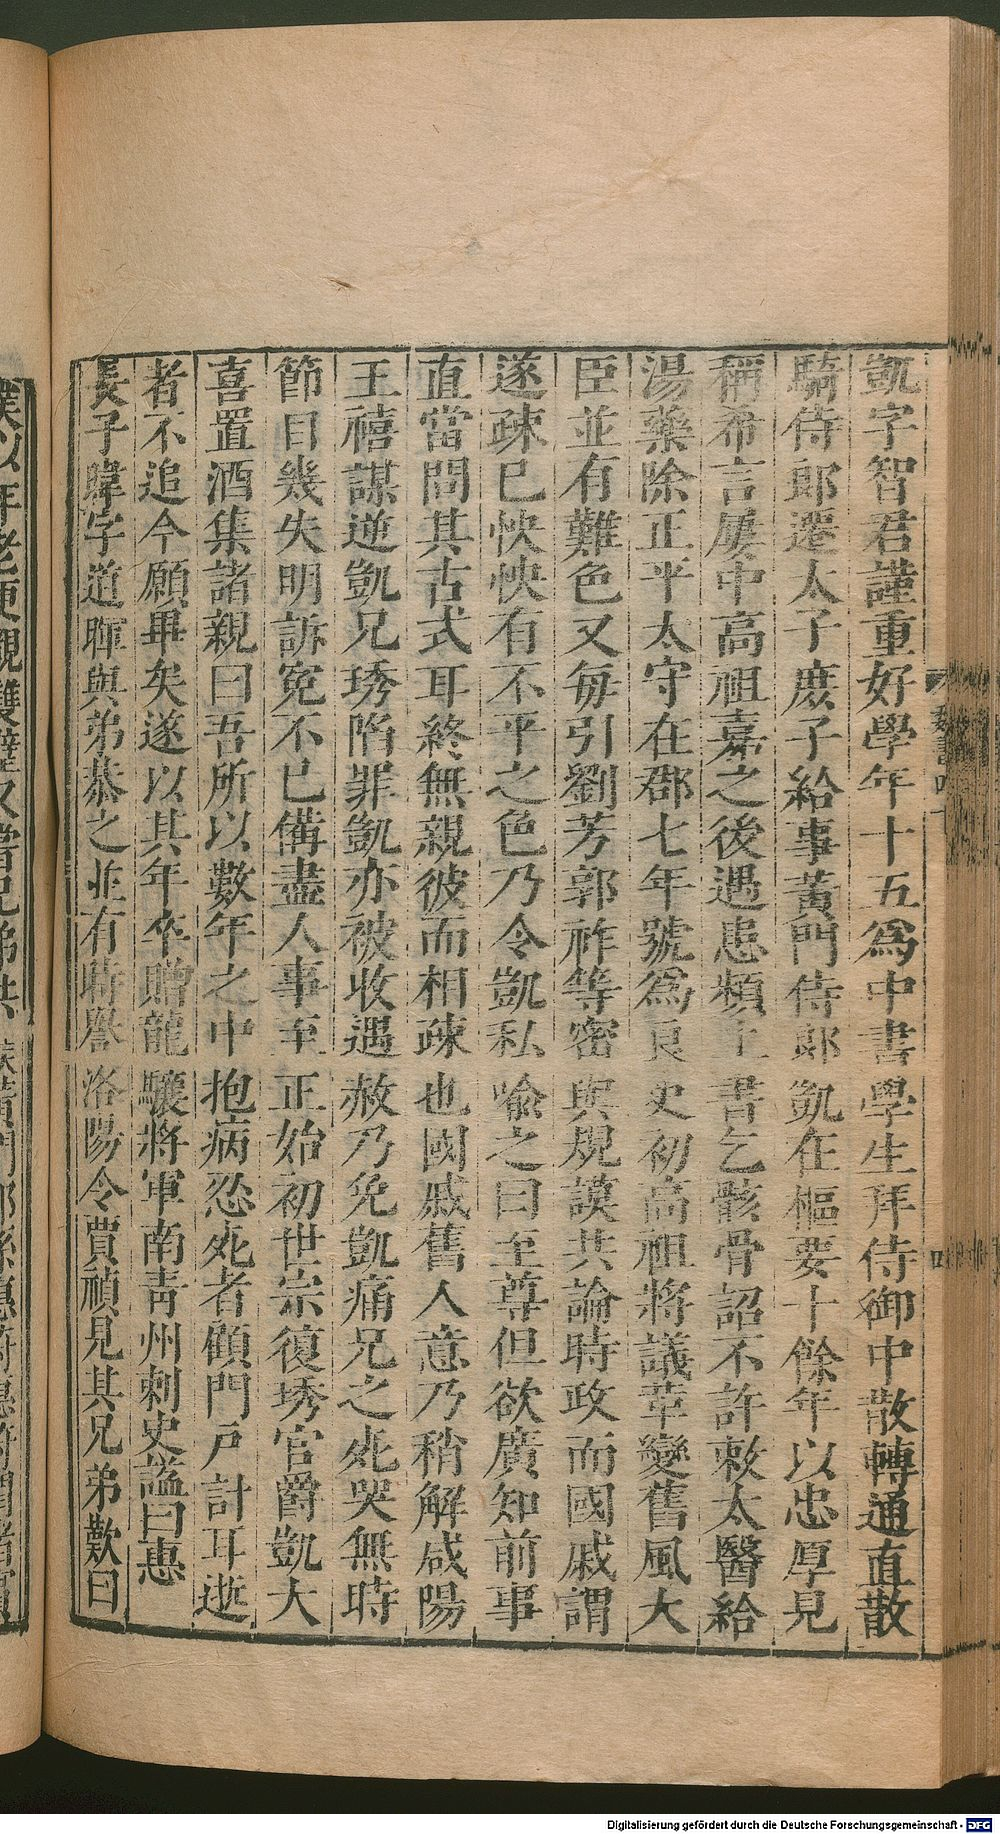 凱字智君謹重好學年十五為中書學生拜侍御中散轉通直散
騎侍郎遷太子庶子給事黃門侍郎凱在樞要十餘年以忠厚見
稱希言屢中高祖嘉之後遇患頻上書乞骸骨詔不許敕太醫給
湯藥除正平太守在郡七年號為良吏初高祖將議革變舊風大
臣並有難色又每引劉芳郭祚等密與規謨共論時政而國戚謂
遂疎已怏怏有不平之色乃令凱私喻之曰至尊但欲廣知前事
直當問其古式耳終無親彼而相疎也國戚舊人意乃稍解咸陽
王禧謀逆凱兄琇陷罪凱亦被收遇赦乃免凱痛兄之死哭無時
節目幾失明訴冤不已備盡人事至正始初世宗復琇官爵凱大
喜置酒集諸親曰吾所以數年之中抱病忍死者顧門戶計耳逝
者不追今願畢矣遂以其年卒贈龍驤將軍南青州刺史謚曰惠
長子暐字道暉與弟恭之並有時譽洛陽令賈禎見其兄弟歎曰
魏書四十
四
Digitalisierung gefördert durch die Deutsche Forschungsgemeinschaft - DFG